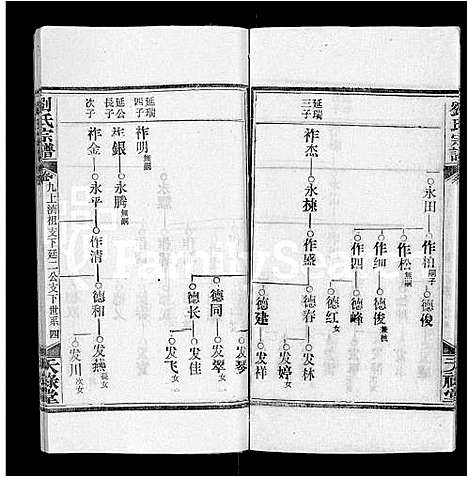 劉氏宗譜
永田
作治 嗣子
德俊
作松 無嗣
作细
德俊 兼祧
作四
德峰
延瑞
三子
祚杰
永棟
作盛
德红 女
德春
发林
发婷 女
德建
发样
延瑞
四子
祚明 無嗣
德同
发琴 女
发翠 女
德长
发佳
发飞 女
延公
長子
祚銀
永腾 無嗣
次子
祚金
永平
作清
德和
发燕 長女
发川 次女
劉氏宗譜
卷九上清祖支下廷二公支下世系 四
天祿堂
天祿堂
FamilySearch